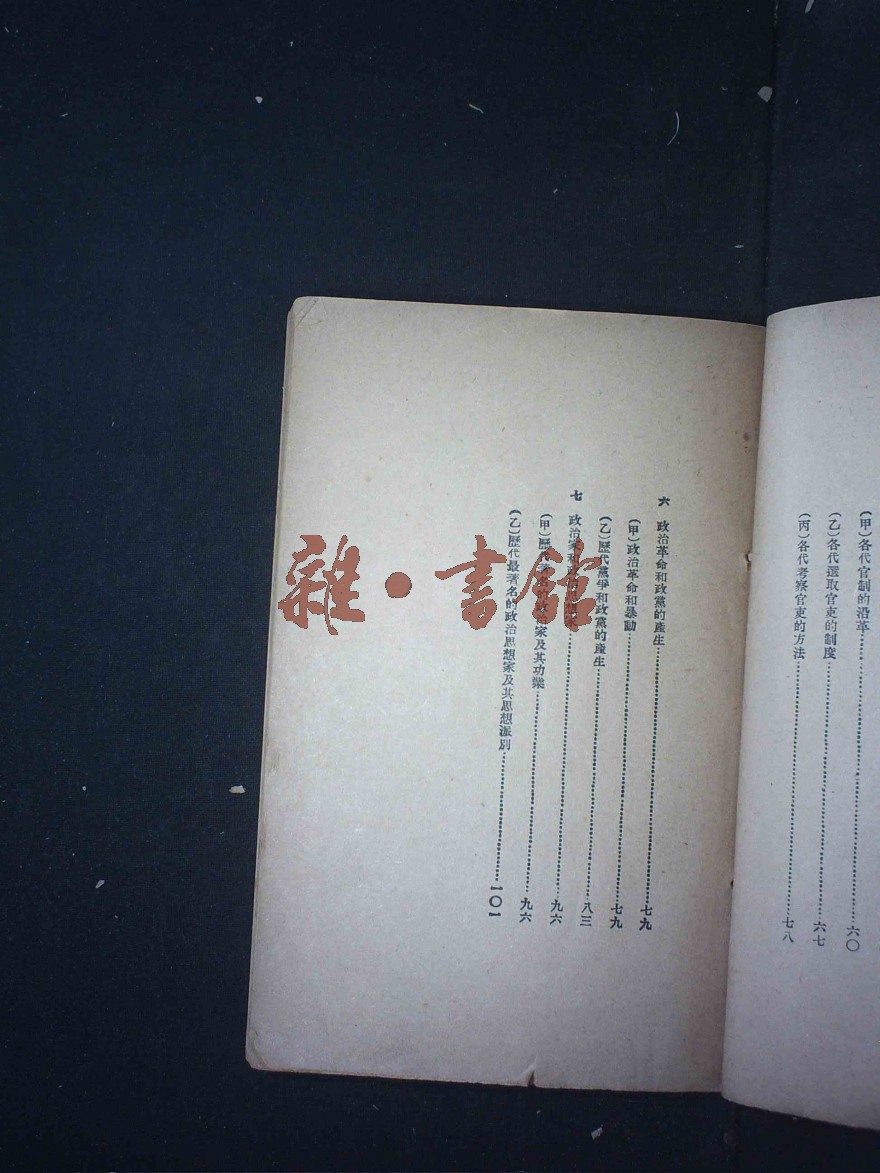 (甲)各代官制的沿革……六〇
(乙)各代選取官吏的制度……六七
(丙)各代考察官吏的方法……七八
六 政治革命和政黨的產生……七九
(甲)政治革命和暴動……七九
(乙)歷代黨爭和政黨的產生……八三
七 政治家和政治……九六
(甲)歷代著名的政治家及其功業……九六
(乙)歷代最著名的政治思想家及其思想派別……一〇一
雜·書館